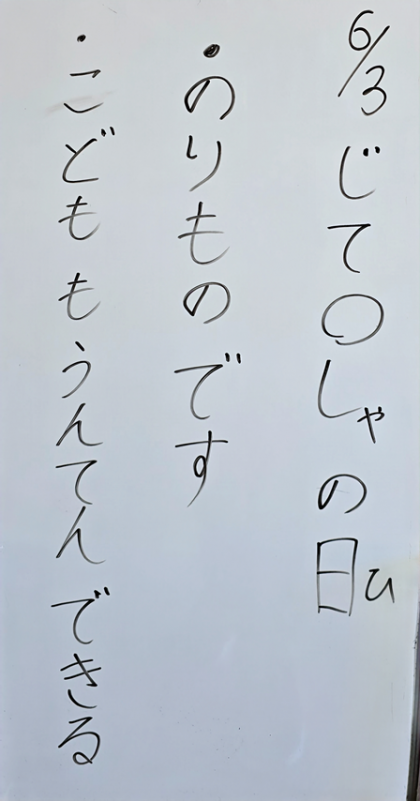 6/3 じて〇しゃの日ひ
・のりものです
・こどももうんてんできる